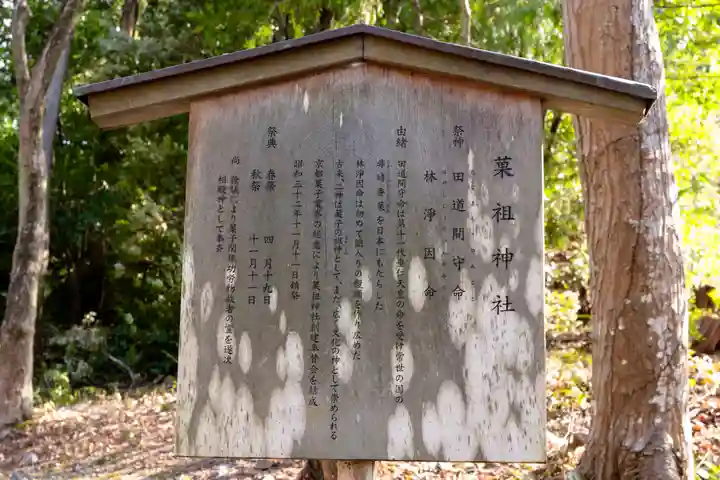 菓祖神社
祭神 田道間守命
林淨因命
由緒 田道間守命は第十一代垂仁天皇の命を受け常世の国の
香菓を日本にもたらした
林淨因命は初めて餡入りの饅頭を作り広めた
古来、二神は菓子の祖神として、また、広く文化の神として崇められる
京都菓子業界の総意により菓祖神社創建奉賛会を結成
昭和三十二年十一月十一日鎮祭
祭典 春祭 四月十九日
秋祭 十一月十一日
尚 により菓子関係功労物故者の霊を逐次
相殿神として奉斎